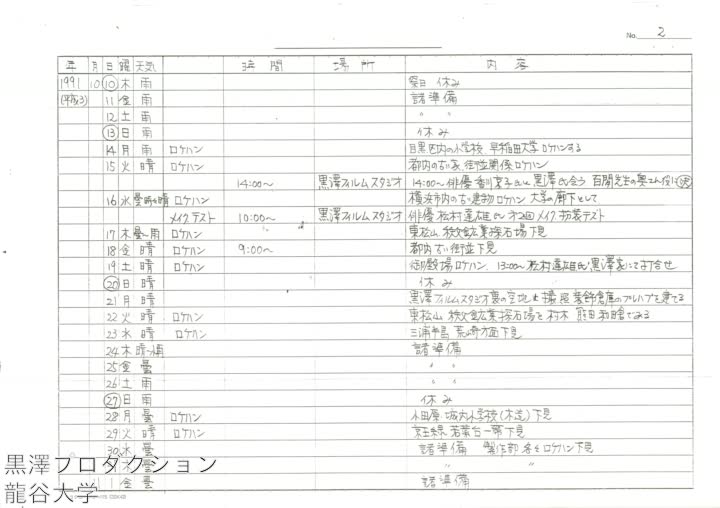 No. 2
年 月 日 曜 天気 時間 場所 内容
1991 10 ⑩ 木 雨 祭日 休み
(平成3) 11 金 雨 諸準備
12 土 雨 〃 〃
⑬ 日 雨 休み
14 月 雨 ロケハン 目黒区内の小学校、早稲田大学 ロケハンする
15 火 晴 ロケハン 都内の古い家、街並関係ロケハン
14:00～ 黒澤フィルムスタジオ 14:00～俳優 香川京子氏と黒澤氏会う 百閒先生の奥さん役に決
16 水 ロケハン 横浜市内の古い建物ロケハン 大学の廊下として
メイクテスト 10:00～ 黒澤フィルムスタジオ 俳優 松村達雄氏 才2回メイク扮装テスト
17 木 曇～雨 ロケハン 東松山 秩父鉱業採石場下見
18 金 晴 ロケハン 9:00～ 都内古い街並下見
19 土 晴 ロケハン 御殿場ロケハン、13:00～松村達雄氏黒澤家にて打合せ
⑳ 日 晴 休み
21 月 晴 黒澤フィルムスタジオ裏の空地に
22 火 晴 ロケハン 東松山 秩父鉱業採石場を
23 水 晴 ロケハン 三浦半島 荒崎方面下見
24 木 諸準備
25 金 曇 〃 〃
26 土 雨 〃 〃
㉗ 日 雨 休み
28 月 曇 ロケハン 小田原、城内小学校(木造)下見
29 火 晴 ロケハン 京王線 若葉台一帯下見
30 水 曇 諸準備 製作部各々ロケハン下見
木 曇 〃 〃
1 金 曇 諸準備
黒澤プロダクション
龍谷大学